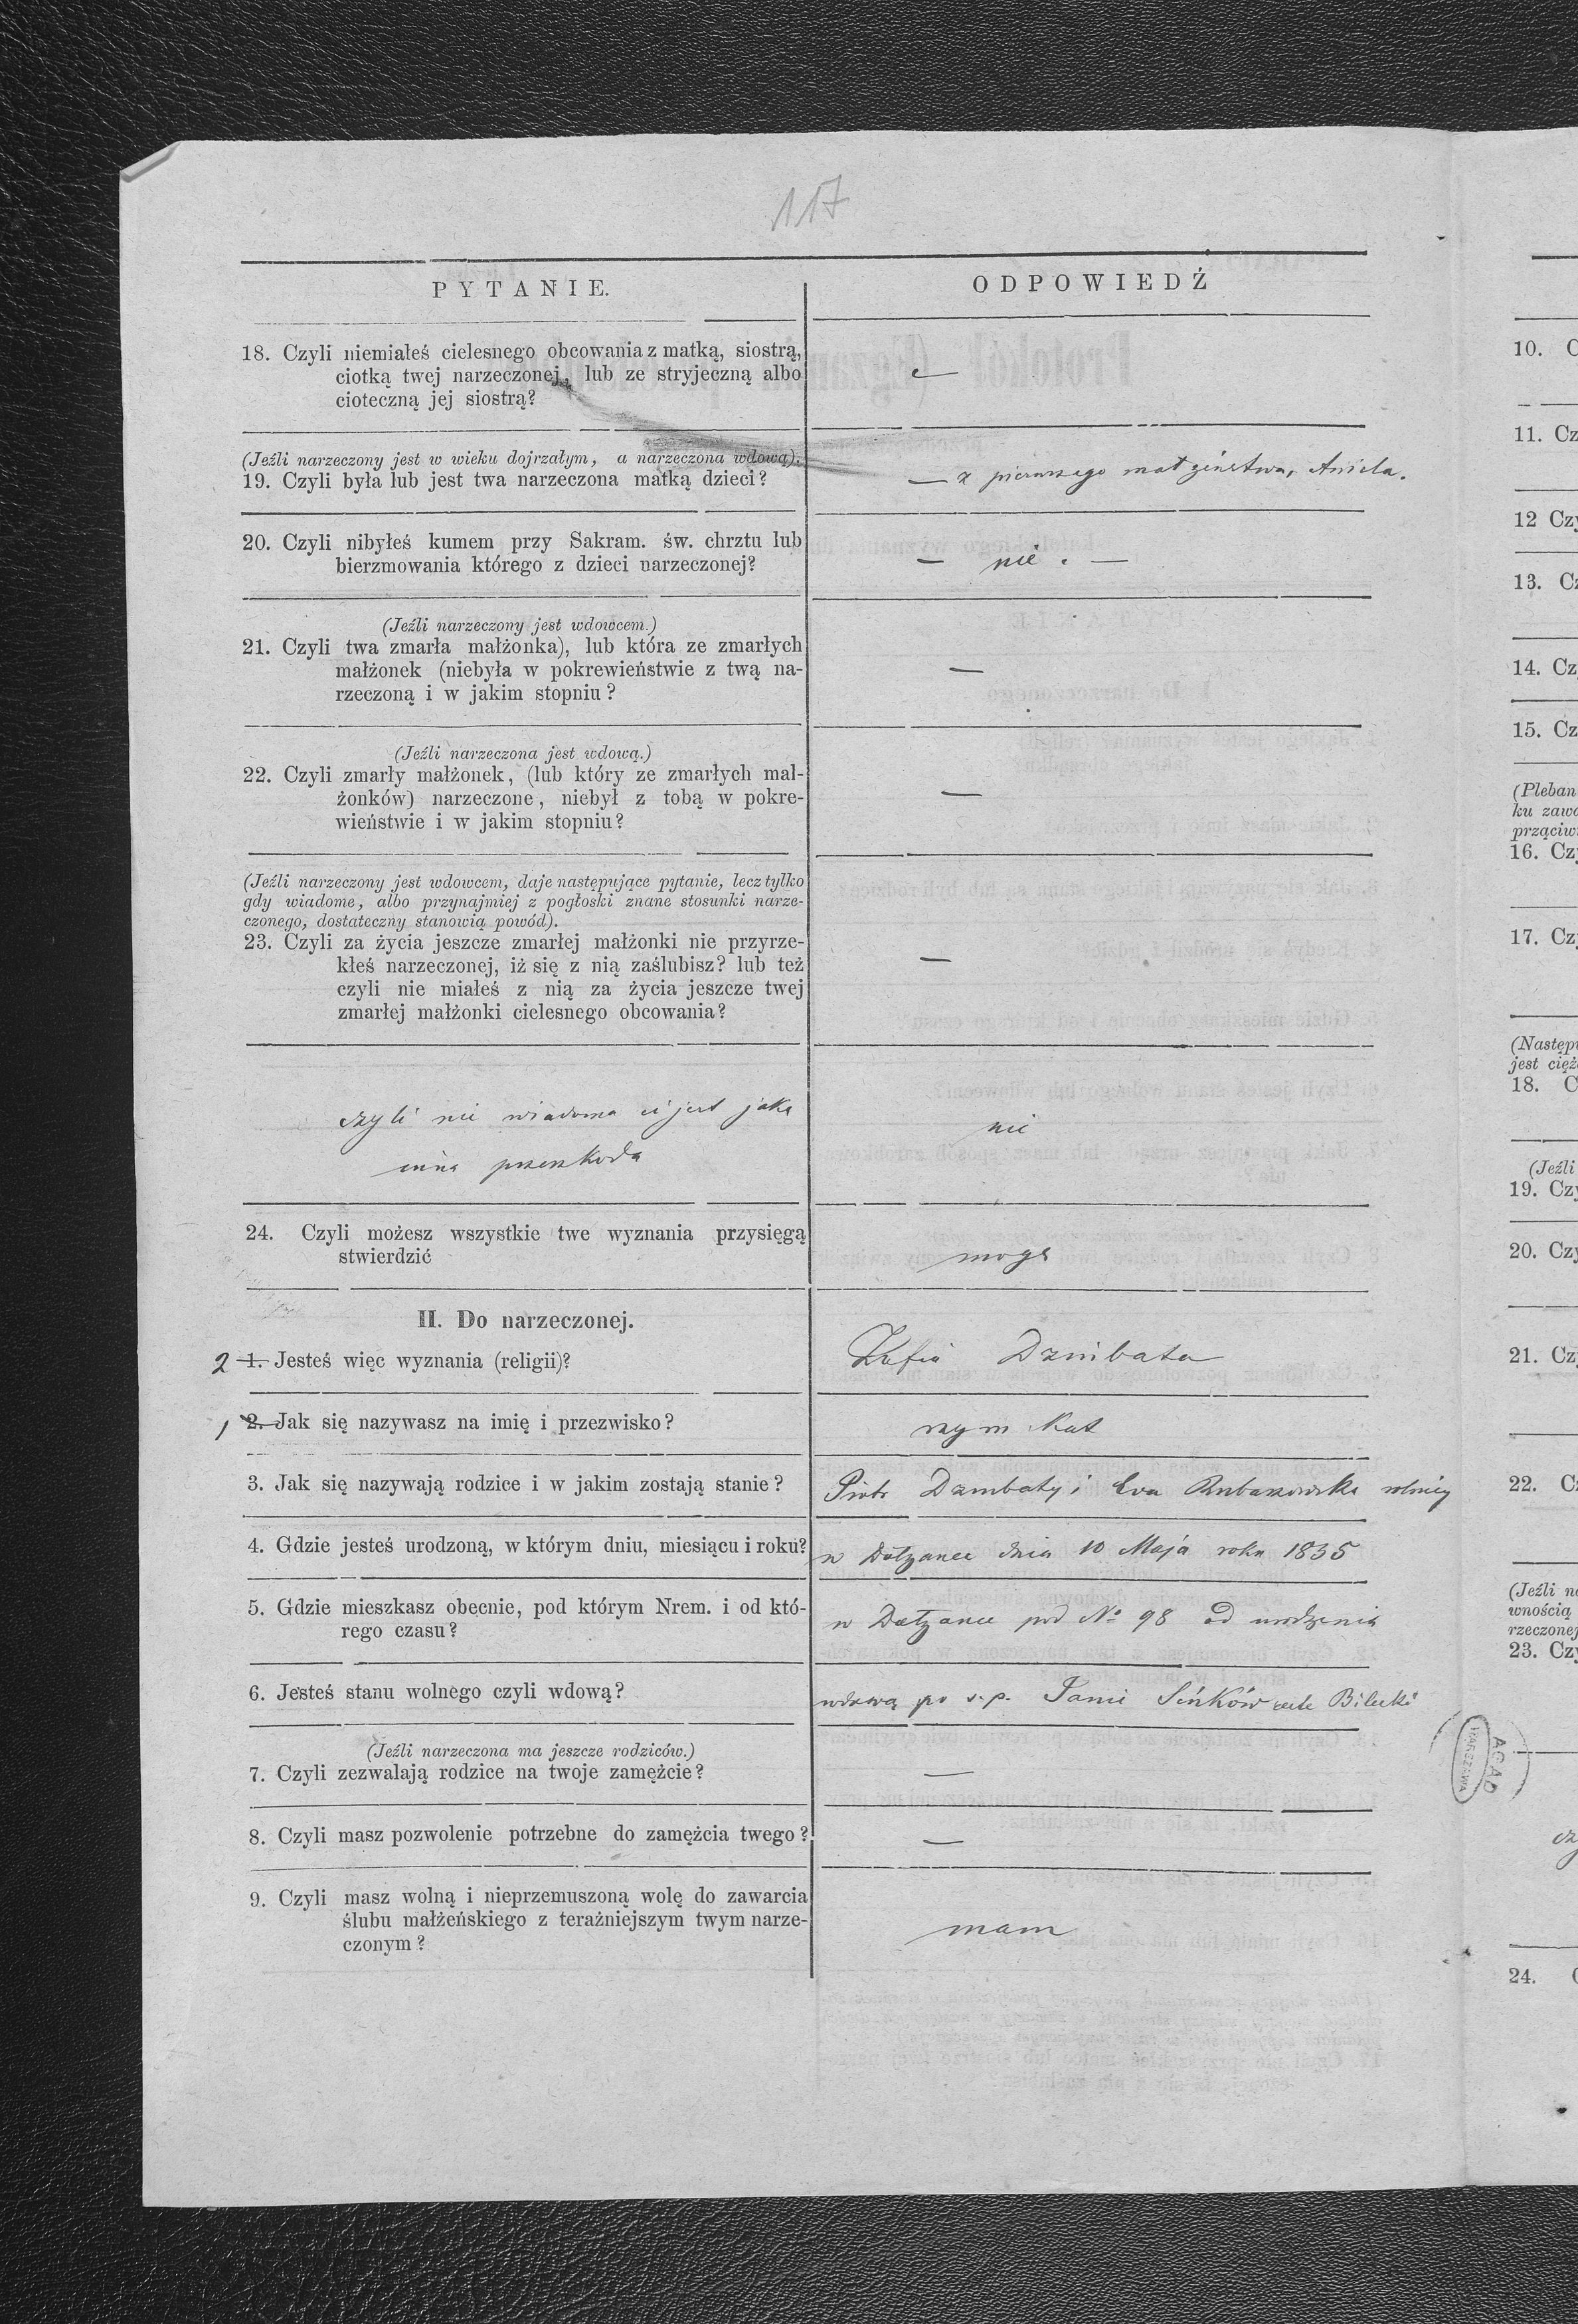 117
PYTANIE.
ODPOWIEDŹ
18. Czyli niemiałeś cielesnego obcowania z matką, siostrą,
ciotką twej narzeczonej, lub ze stryjeczną albo
cioteczną jej siostrą?
—
(Jeźli narzeczony jest w wieku dojrzałym, a narzeczona wdową).
19. Czyli była lub jest twa narzeczona matką dzieci?
— z pierwszego małżeństwa, Aniela.
20. Czyli nibyłeś kumem przy Sakram. św. chrztu lub
bierzmowania którego z dzieci narzeczonej?
— nie . —
(Jeźli narzeczony jest wdowcem.)
21. Czyli twa zmarła małżonka), lub która ze zmarłych
małżonek (niebyła w pokrewieństwie z twą na-
rzeczoną i w jakim stopniu?
—
(Jeźli narzeczona jest wdową.)
22. Czyli zmarły małżonek, (lub który ze zmarłych mał-
żonków) narzeczone, niebył z tobą w pokre-
wieństwie i w jakim stopniu?
—
(Jeźli narzeczony jest wdowcem, daje następujące pytanie, lecz tylko
gdy wiadome, albo przynajmiej z pogłoski znane stosunki narze-
czonego, dostateczny stanowią powód).
23. Czyli za życia jeszcze zmarłej małżonki nie przyrze-
kłeś narzeczonej, iż się z nią zaślubisz? lub też
czyli nie miałeś z nią za życia jeszcze twej
zmarłej małżonki cielesnego obcowania?
—
czyli nie wiadoma ci jest jaka
inna przeszkoda
nie
24. Czyli możesz wszystkie twe wyznania przysięgą
stwierdzić
mogę
II. Do narzeczonej.
2 1. Jesteś więc wyznania (religii)?
Zofia
1 2. Jak się nazywasz na imię i przezwisko?
rzym kat
3. Jak się nazywają rodzice i w jakim zostają stanie?
Piotr i Ewa rolnicy
4. Gdzie jesteś urodzoną, w którym dniu, miesiącu i roku?
w Dołżance dnia 10 Maja roku 1835
5. Gdzie mieszkasz obecnie, pod którym Nrem. i od któ-
rego czasu?
w Dołżance pod No 98 od urodzenia
6. Jesteś stanu wolnego czyli wdową?
wdową po s.p. Janie Sińków
(Jeźli narzeczona ma jeszcze rodziców.)
7. Czyli zezwalają rodzice na twoje zamężcie?
—
8. Czyli masz pozwolenie potrzebne do zamężcia twego?
—
9. Czyli masz wolną i nieprzemuszoną wolę do zawarcia
ślubu małżeńskiego z teraźniejszym twym narze-
czonym?
mam
10. C
11. Cz
12 Czy
13. Cz
14. Cz
15. Cz
(Pleban
ku zawa
prząciw
16. Czy
17. Czy
(Następ
jest cięż
18. C
(Jeźli
19. Czy
20. Czy
21. Czy
22. Cz
(Jeźli na
wnością
rzeczonej
23. Czy
AGAD
WARSZAWA
cz
24. C